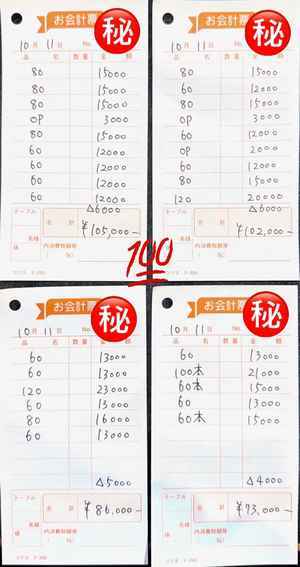 お会計票
㊙
10月11日 No.
品 名 数量 金 額
80 15000
80 15000
80 15000
OP 3000
80 15000
60 12000
60 12000
60 12000
60 12000
△6000
テーブル
合計 ¥105,000-
名様
内消費税額等
お会計票
㊙
10月11日 No.
品 名 数量 金 額
80 15000
60 12000
80 15000
OP 3000
60 12000
OP 2000
60 12000
80 15000
120 20000
△6000
テーブル
合計 ¥102,000-
名様
内消費税額等
💯
お会計票
㊙
10月11日 No.
品 名 数量 金 額
60 13000
60 13000
120 23000
60 13000
80 16000
60 13000
△5000
テーブル
合計 ¥86,000-
名様
内消費税額等
お会計票
㊙
10月11日 No.
品 名 数量 金 額
60 13000
100本 21000
60本 15000
60 13000
60本 15000
△4000
テーブル
合計 ¥73,000-
名様
内消費税額等